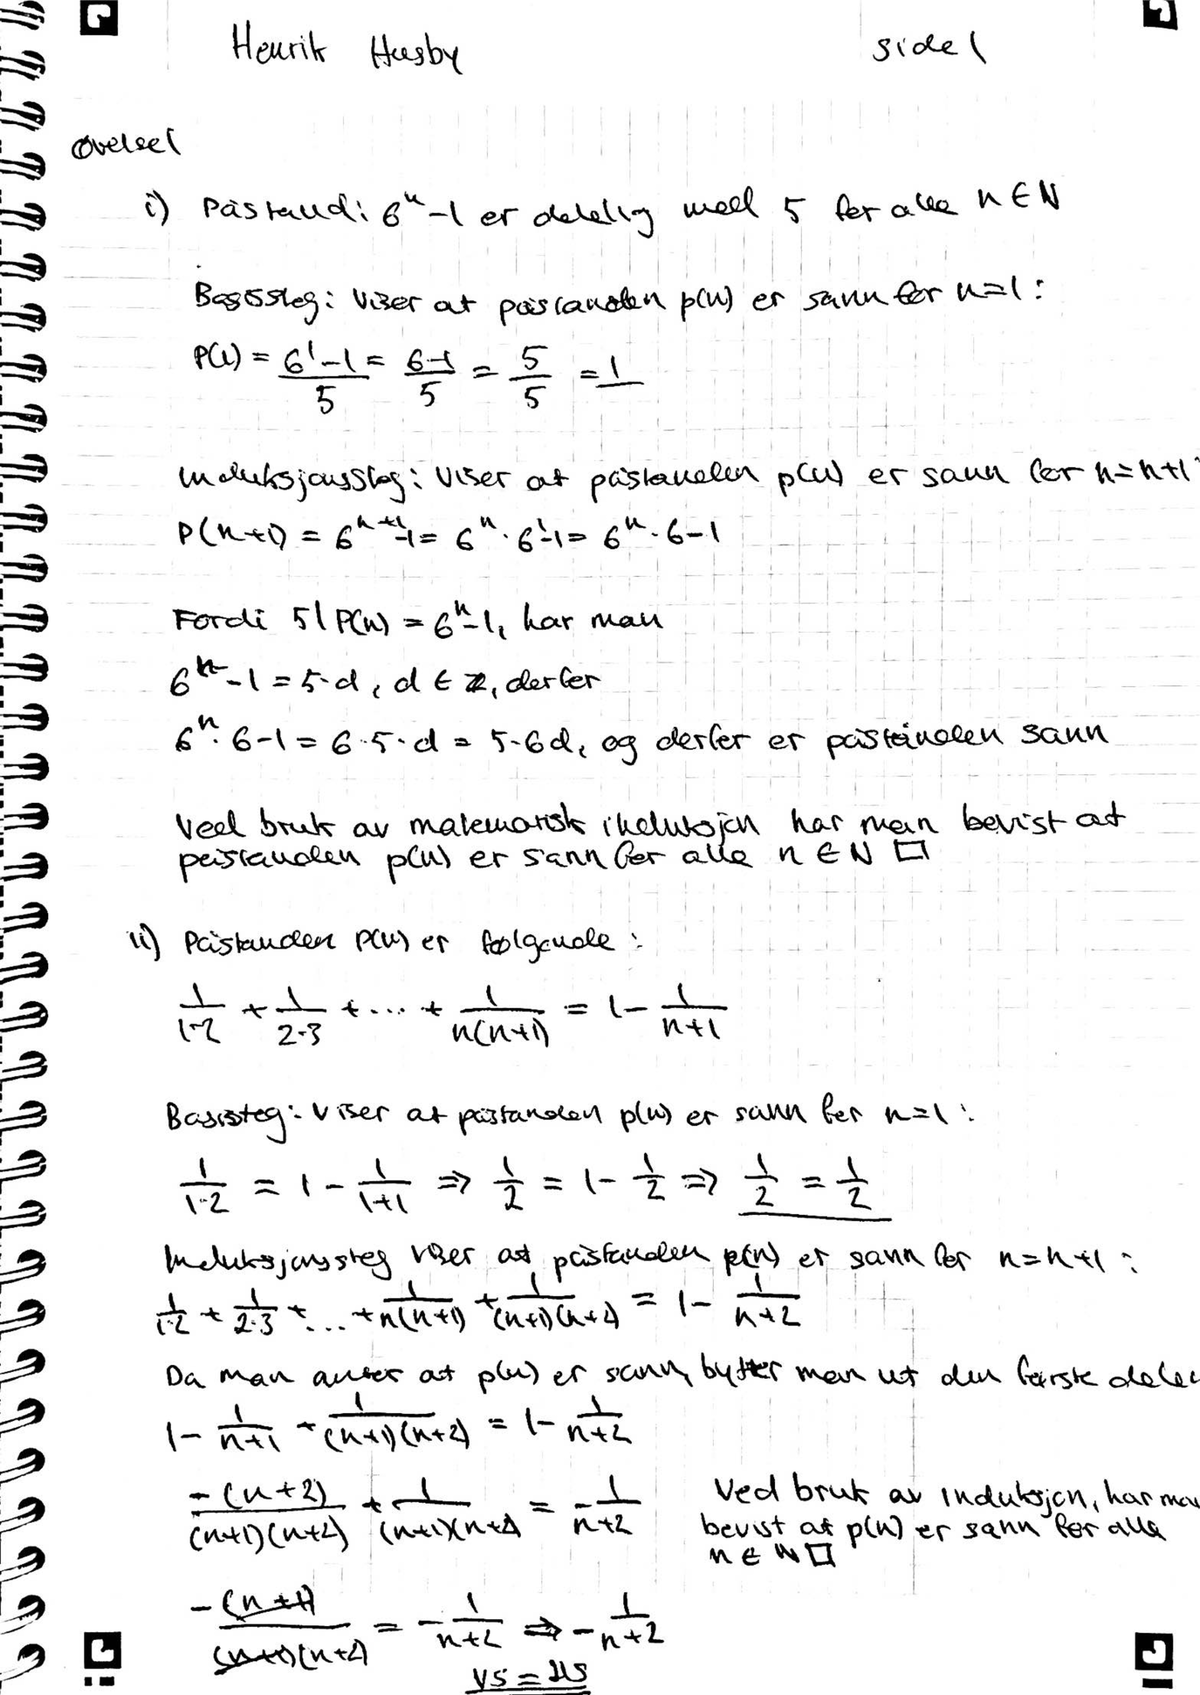 Henrik Husby side 1
Øvelse 1
i) Påstand: 6^n - 1 er delelig med 5 for alle n ∈ N
Basissteg: Viser at påstanden p(n) er sann for n=1:
P(1) = (6^1 - 1)/5 = (6-1)/5 = 5/5 = 1
Induksjonssteg: Viser at påstanden p(n) er sann for n=n+1:
P(n+1) = 6^(n+1) - 1 = 6^n · 6^1 - 1 = 6^n · 6 - 1
Fordi 5 | P(n) = 6^n - 1, har man
6^n - 1 = 5·d, d ∈ Z, derfor
6^n · 6 - 1 = 6·5·d = 5·6d, og derfor er påstanden sann
Ved bruk av matematisk induksjon har man bevist at
påstanden p(n) er sann for alle n ∈ N □
ii) Påstanden P(n) er følgende:
1/(1·2) + 1/(2·3) + ... + 1/(n(n+1)) = 1 - 1/(n+1)
Basissteg: Viser at påstanden p(n) er sann for n=1:
1/(1·2) = 1 - 1/(1+1) ⇒ 1/2 = 1 - 1/2 ⇒ 1/2 = 1/2
Induksjonssteg viser at påstanden p(n) er sann for n=n+1:
1/(1·2) + 1/(2·3) + ... + 1/(n(n+1)) + 1/((n+1)(n+2)) = 1 - 1/(n+2)
Da man antar at p(n) er sann, bytter man ut den første delen
1 - 1/(n+1) + 1/((n+1)(n+2)) = 1 - 1/(n+2)
-(n+2)/((n+1)(n+2)) + 1/((n+1)(n+2)) = -1/(n+2)
Ved bruk av induksjon, har man
bevist at p(n) er sann for alle
n ∈ N □
-(n+1)/((n+1)(n+2)) = -1/(n+2) ⇒ -1/(n+2)
VS = HS